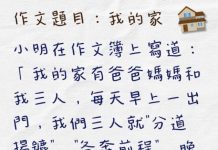 作文題目：我的家
小明在作文簿上寫道：
「我的家有爸爸媽媽和
我三人，每天早上一出
門，我們三人就"分道
揚鑣"、"各奔前程"，晚